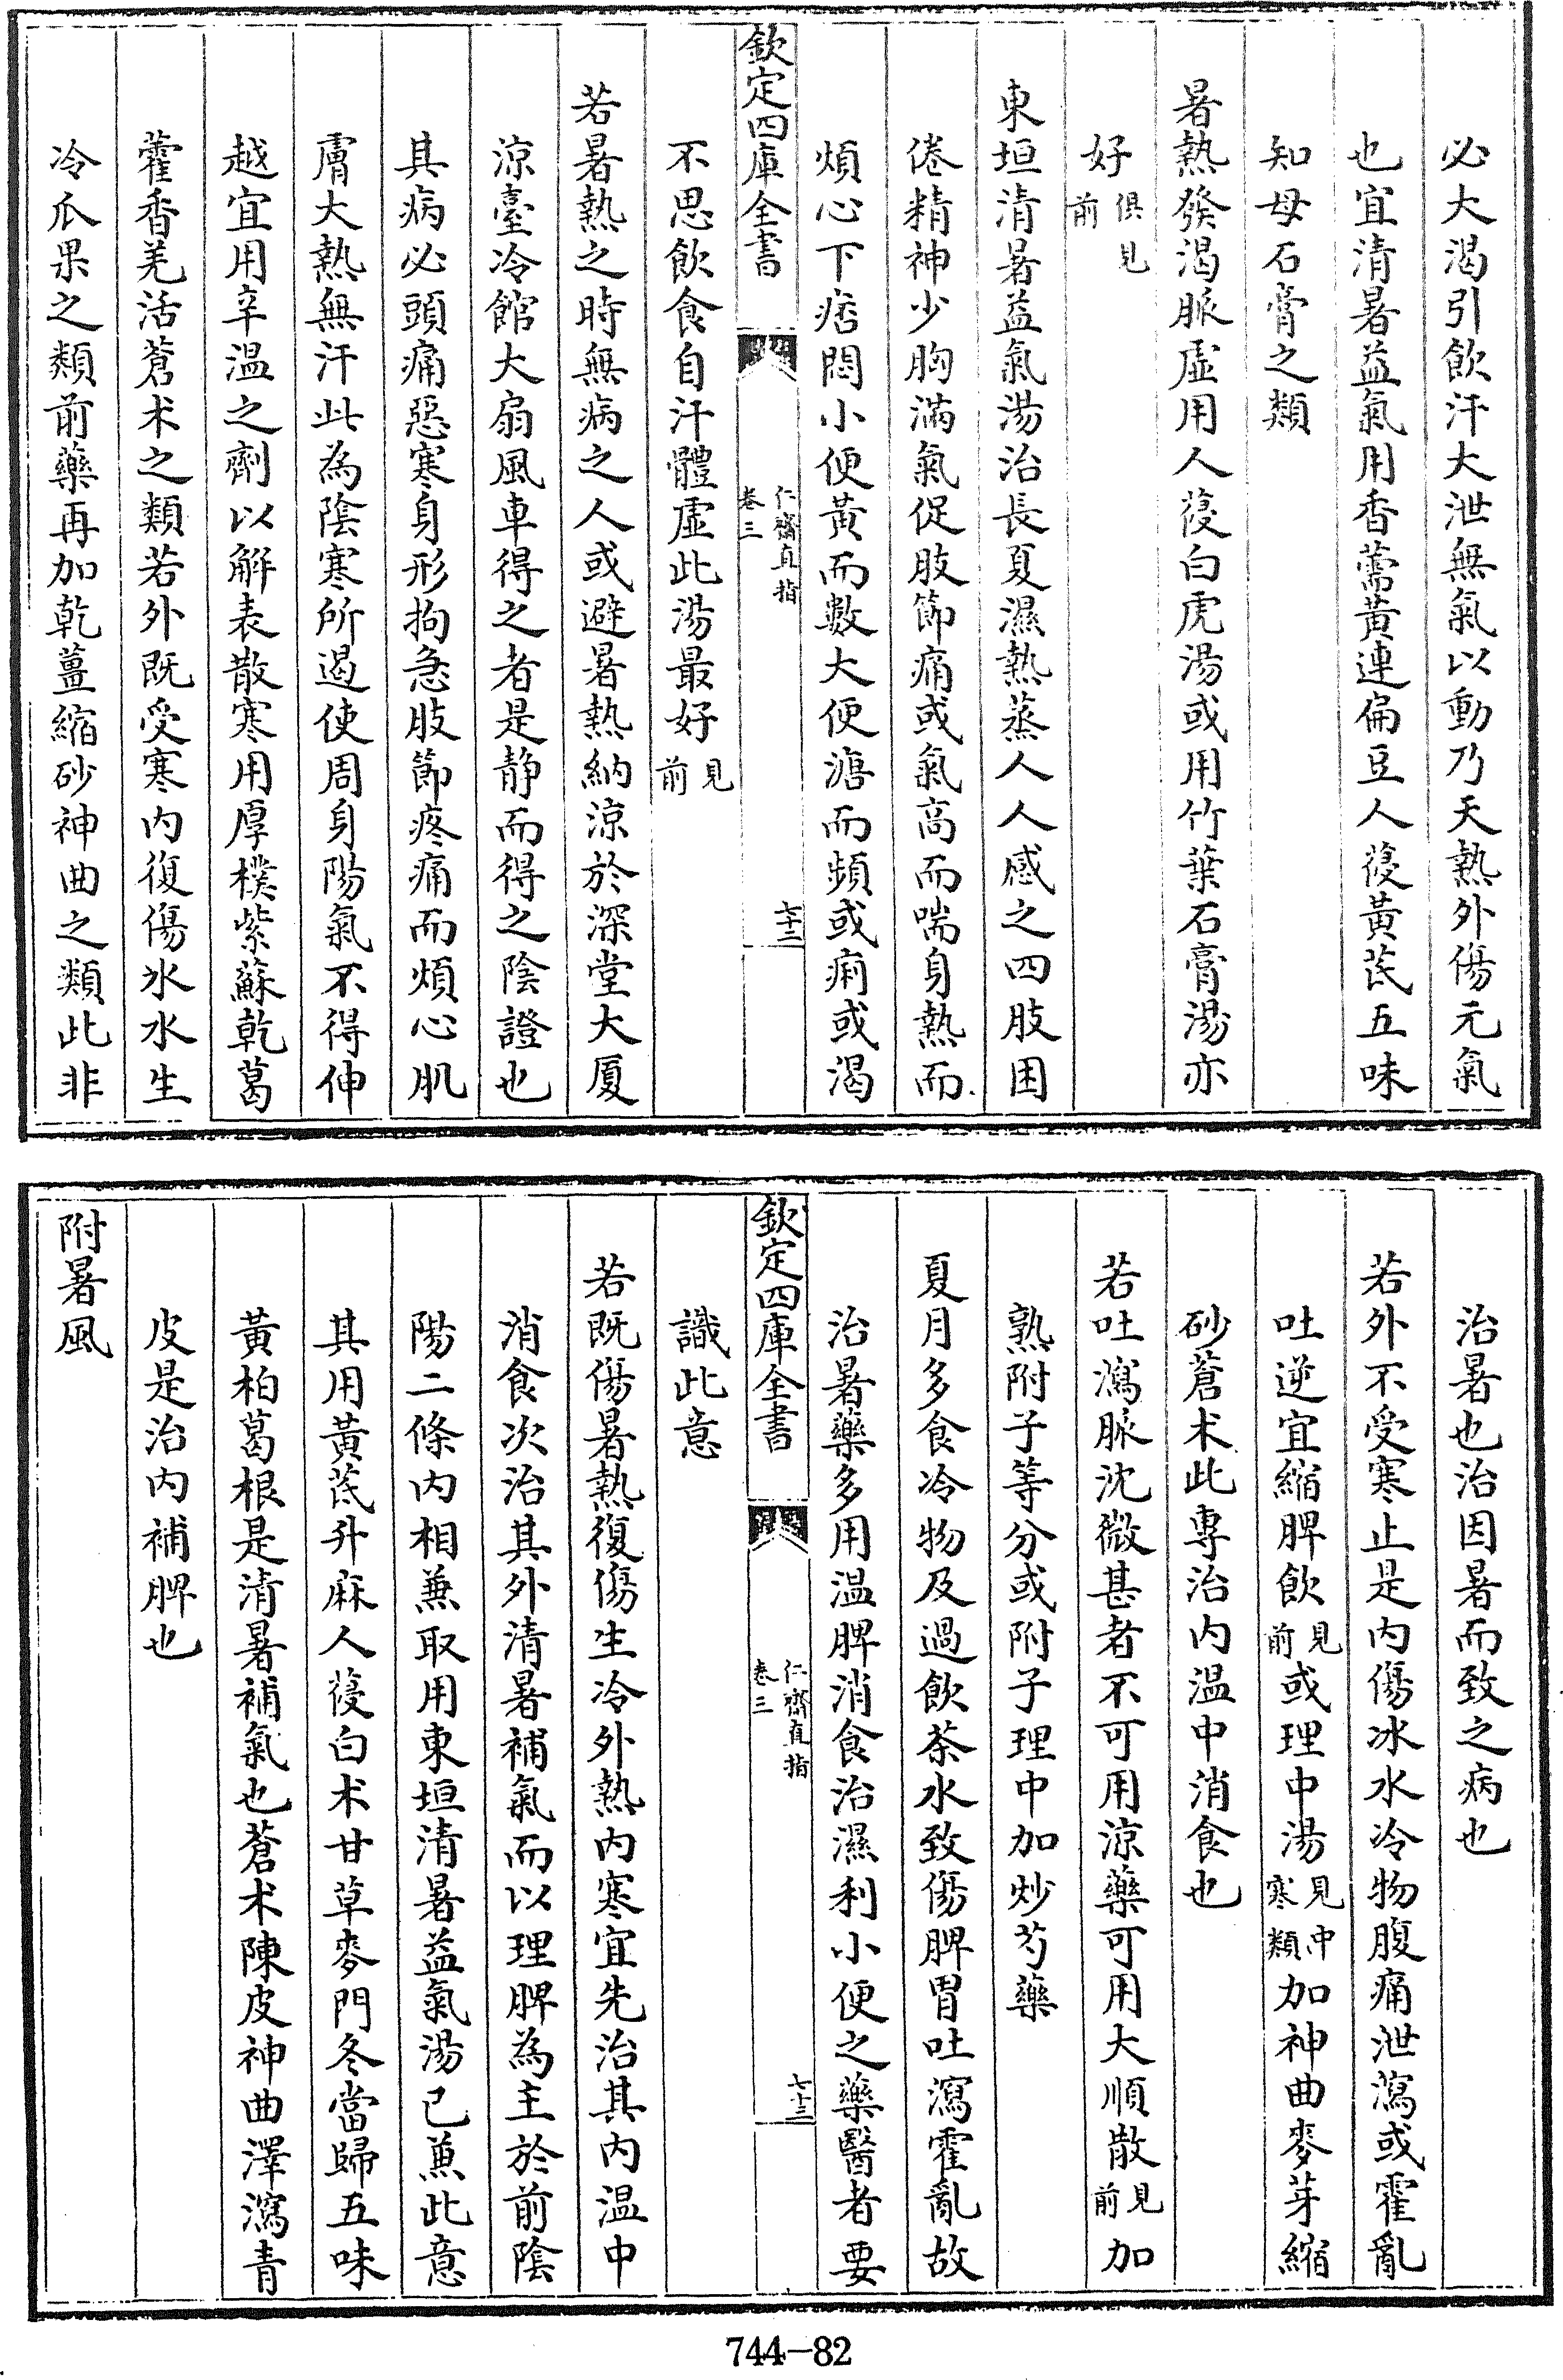 必大渴引飲汗大泄無氣以動乃天熱外傷元氣
也宜清暑益氣用香薷黃連扁豆人葠黃芪五味
知母石膏之類
暑熱發渴脈虛用人葠白虎湯或用竹葉石膏湯亦
好俱見前
東垣清暑益氣湯治長夏濕熱蒸人人感之四肢困
倦精神少胸滿氣促肢節痛或氣高而喘身熱而
煩心下痞悶小便黃而數大便溏而頻或痢或渴
欽定四庫全書 仁齋直指卷三 七十二
不思飲食自汗體虛此湯最好見前
若暑熱之時無病之人或避暑熱納涼於深堂大廈
涼臺冷館大扇風車得之者是静而得之陰證也
其病必頭痛惡寒身形拘急肢節疼痛而煩心肌
膚大熱無汗此為陰寒所遏使周身陽氣不得伸
越宜用辛温之劑以解表散寒用厚樸紫蘇乾葛
藿香羌活蒼术之類若外既受寒内復傷氷水生
冷瓜果之類前藥再加乾薑縮砂神曲之類此非
治暑也治因暑而致之病也
若外不受寒止是内傷冰水冷物腹痛泄瀉或霍亂
吐逆宜縮脾飲見前或理中湯見中寒類加神曲麥芽縮
砂蒼术此專治内温中消食也
若吐瀉脈沈微甚者不可用涼藥可用大順散見前加
熟附子等分或附子理中加炒芍藥
夏月多食冷物及過飲茶水致傷脾胃吐瀉霍亂故
治暑藥多用温脾消食治濕利小便之藥醫者要
欽定四庫全書 仁齋直指卷三 七十三
識此意
若既傷暑熱復傷生冷外熱内寒宜先治其内温中
消食次治其外清暑補氣而以理脾為主於前陰
陽二條内相兼取用東垣清暑益氣湯已兼此意
其用黃芪升麻人葠白术甘草麥門冬當歸五味
黃柏葛根是清暑補氣也蒼术陳皮神曲澤瀉青
皮是治内補脾也
附暑風
744-82